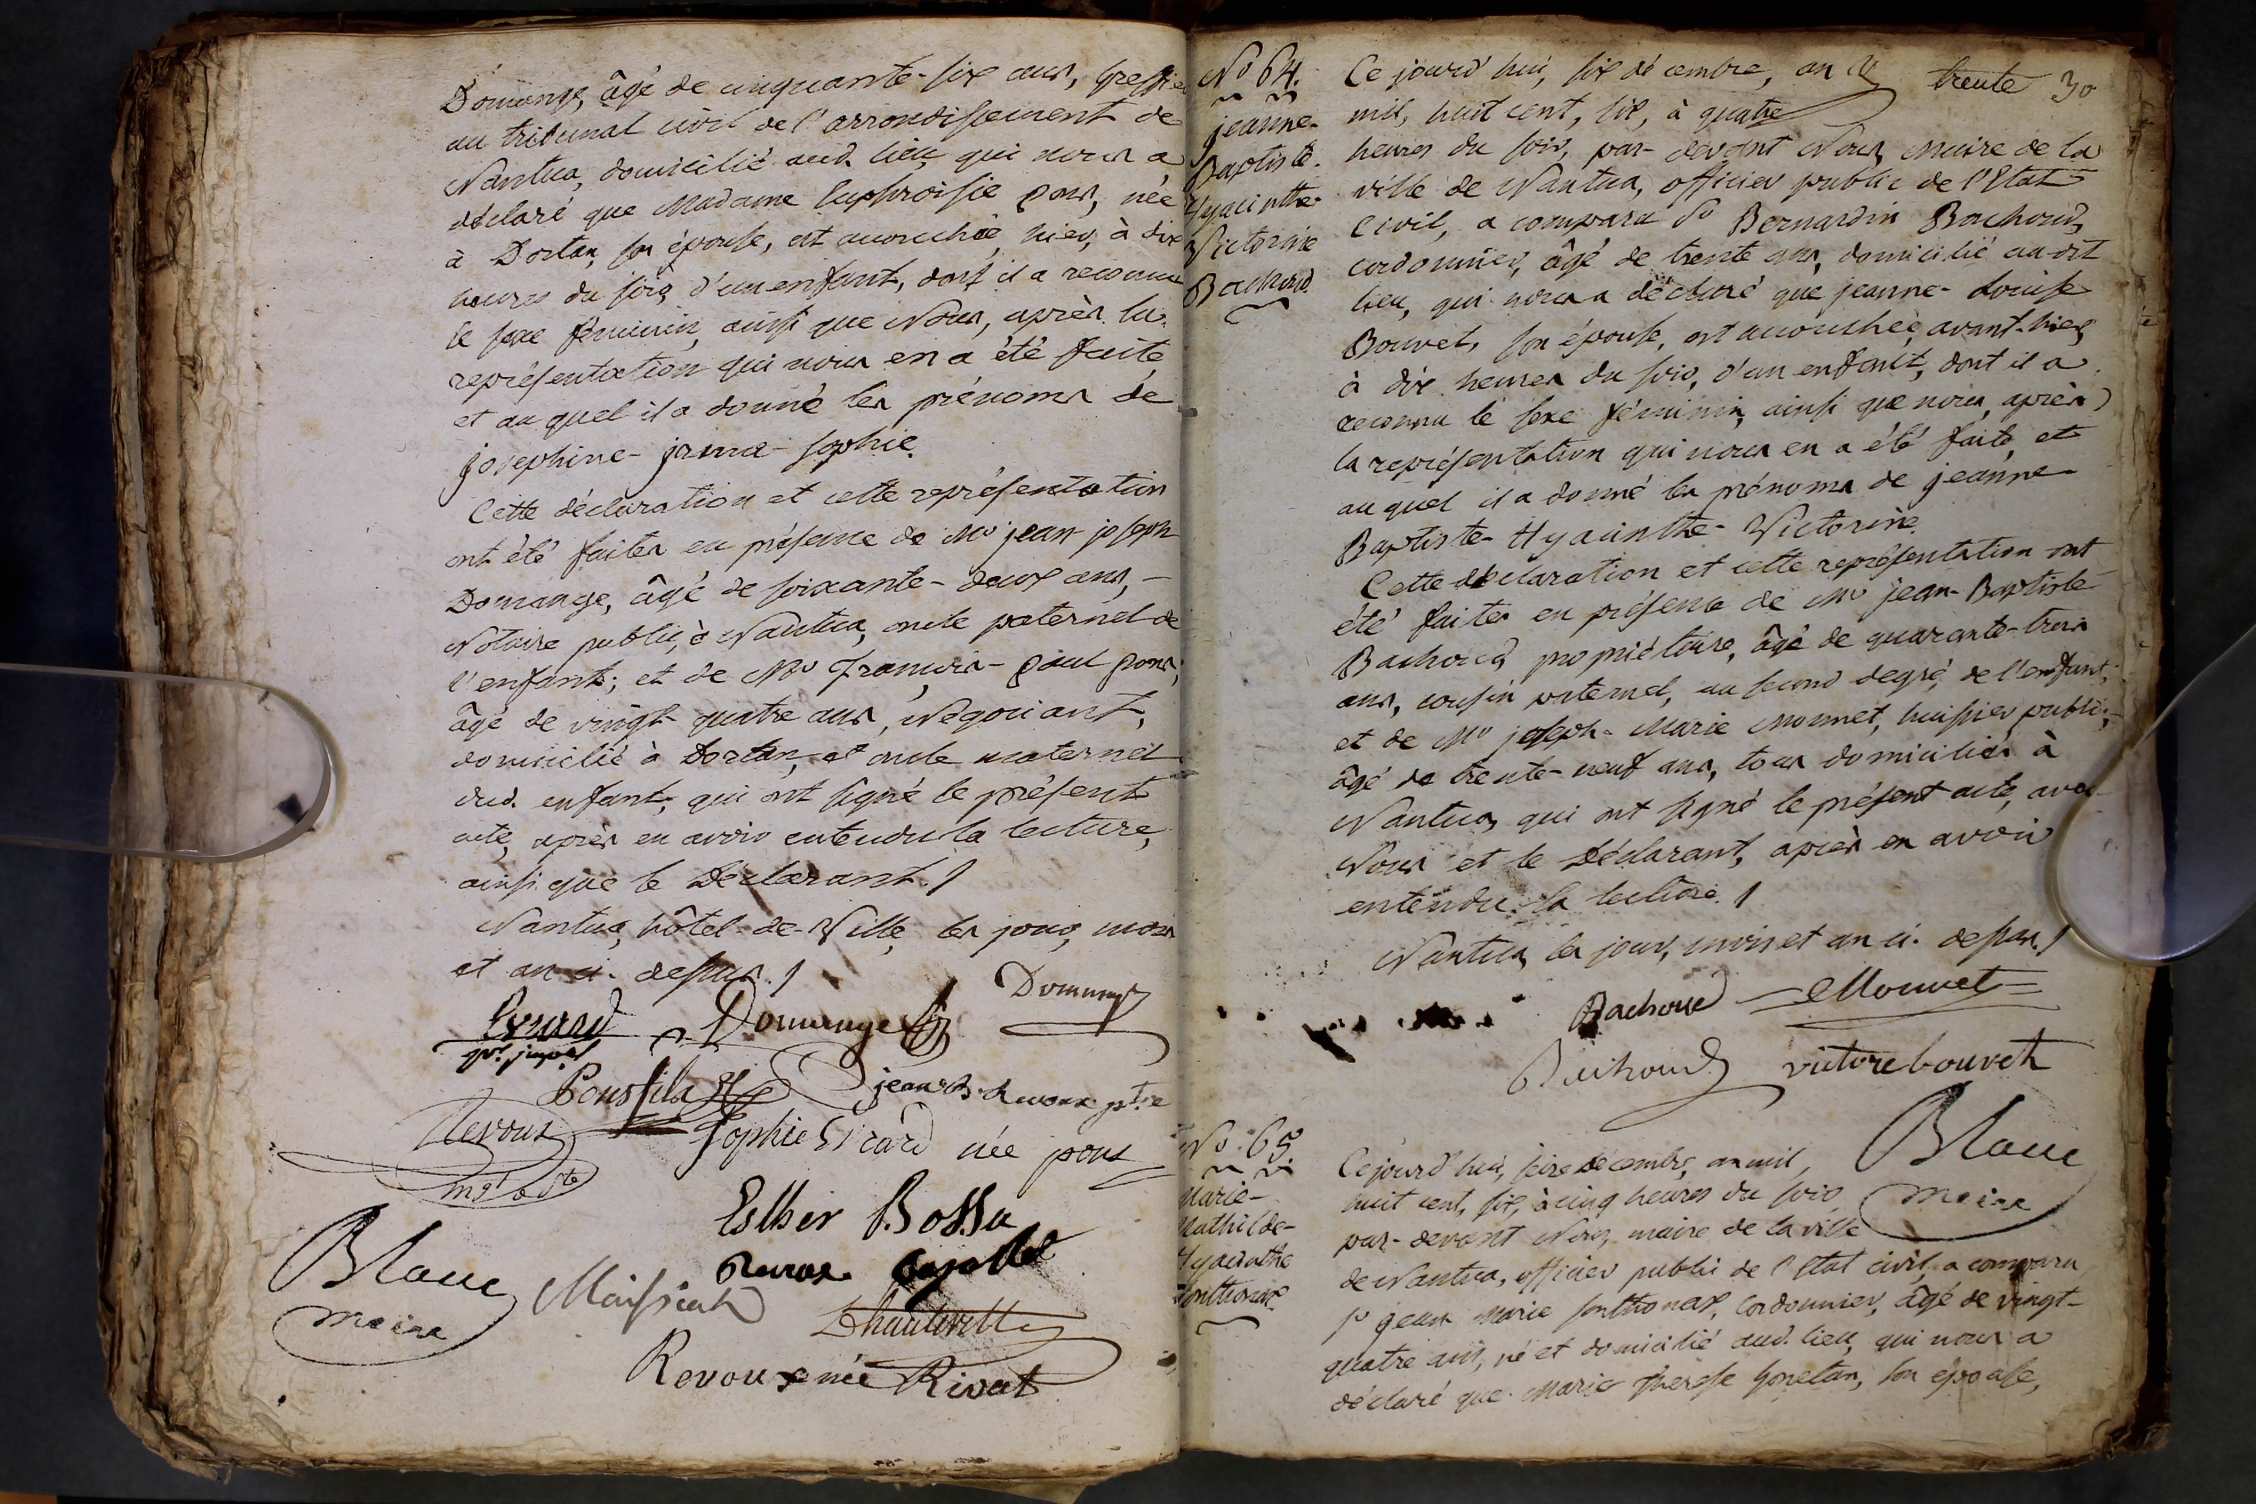 Domange, âgé de cinquante-six ans, greffier
au tribunal civil de l'arrondissement de
Nantua, domicilié aud. lieu, qui nous a
déclaré que Madame Euphroisie Pons, née
à Dortan, son épouse, est accouchée, hier, à dix
heures du soir, d'un enfant, dont il a reconnu
le sexe féminin, ainsi que Nous, après la
représentation qui nous en a été faite,
et au quel il a donné les prénoms de
josephine- - sophie.
Cette déclaration et cette représentation
ont été faites en présence de Mr jean joseph
Domange, âgé de soixante-deux ans, -
Notaire public, à Nantua, oncle paternel de
l'enfant; et de Mr françois-paul pons,
âgé de vingt-quatre ans, Négociant,
domicilié à Dortan, et oncle maternel
dud. enfant; qui ont signé le présent
acte, après en avoir entendu la lecture,
ainsi que le Déclarant./
Nantua, hôtel-de-Ville, les jour, mois
et an ci-dessus./
Domange
Domange
Pons fils
jean B. Revoux ptre
Revoux
Sophie née pons
Esther Bossu
Blanc
maire
Maissiat
Dhauteville
Revoux née Rivat
No 64.
jeanne-
Baptiste-
Hyacinthe-
Victorine
Bachoud.
trente 30
Ce jourd'hui, six décembre, an
mil, huit cent, six, à quatre
heures du soir, par-devant Nous, Maire de la
ville de Nantua, officier public de l'Etat
civil, a comparu Sr Bernardin Bachoud,
cordonnier, âgé de trente ans, domicilié au-dit
lieu, qui nous a déclaré que jeanne-Louise
Bouvet, son épouse, est accouchée, avant-hier,
à dix heures du soir, d'un enfant, dont il a
reconnu le sexe féminin, ainsi que nous, après
la représentation qui nous en a été faite, et
au quel il a donné les prénoms de jeanne-
Baptiste-Hyacinthe-Victorine.
Cette déclaration et cette représentation ont
été faites en présence de Mr jean-Baptiste
Bachoud, propriétaire, âgé de quarante-trois
ans, cousin paternel, au second degré, de l'enfant;
et de Mr joseph-Marie Monnet, huissier public,
âgé de trente-neuf ans, tous domiciliés à
Nantua, qui ont signé le présent acte, avec
Nous et le Déclarant, après en avoir
entendu la lecture./
Nantua, les jour, mois et an ci-dessus./
Bachoud Monnet
Bachoud victore bouvet
Blanc
maire
No 65.
Marie-
Mathilde-
Hyacinthe
Sonthonax.
Ce jourd'hui, seize décembre, an mil,
huit cent, six, à cinq heures du soir,
par-devant Nous, maire de la ville
de Nantua, officier public de l'Etat civil, a comparu
Sr jean Marie Sonthonax, Cordonnier, âgé de vingt-
quatre ans, né et domicilié aud. lieu, qui nous a
déclaré que Marie Therese , son épouse,